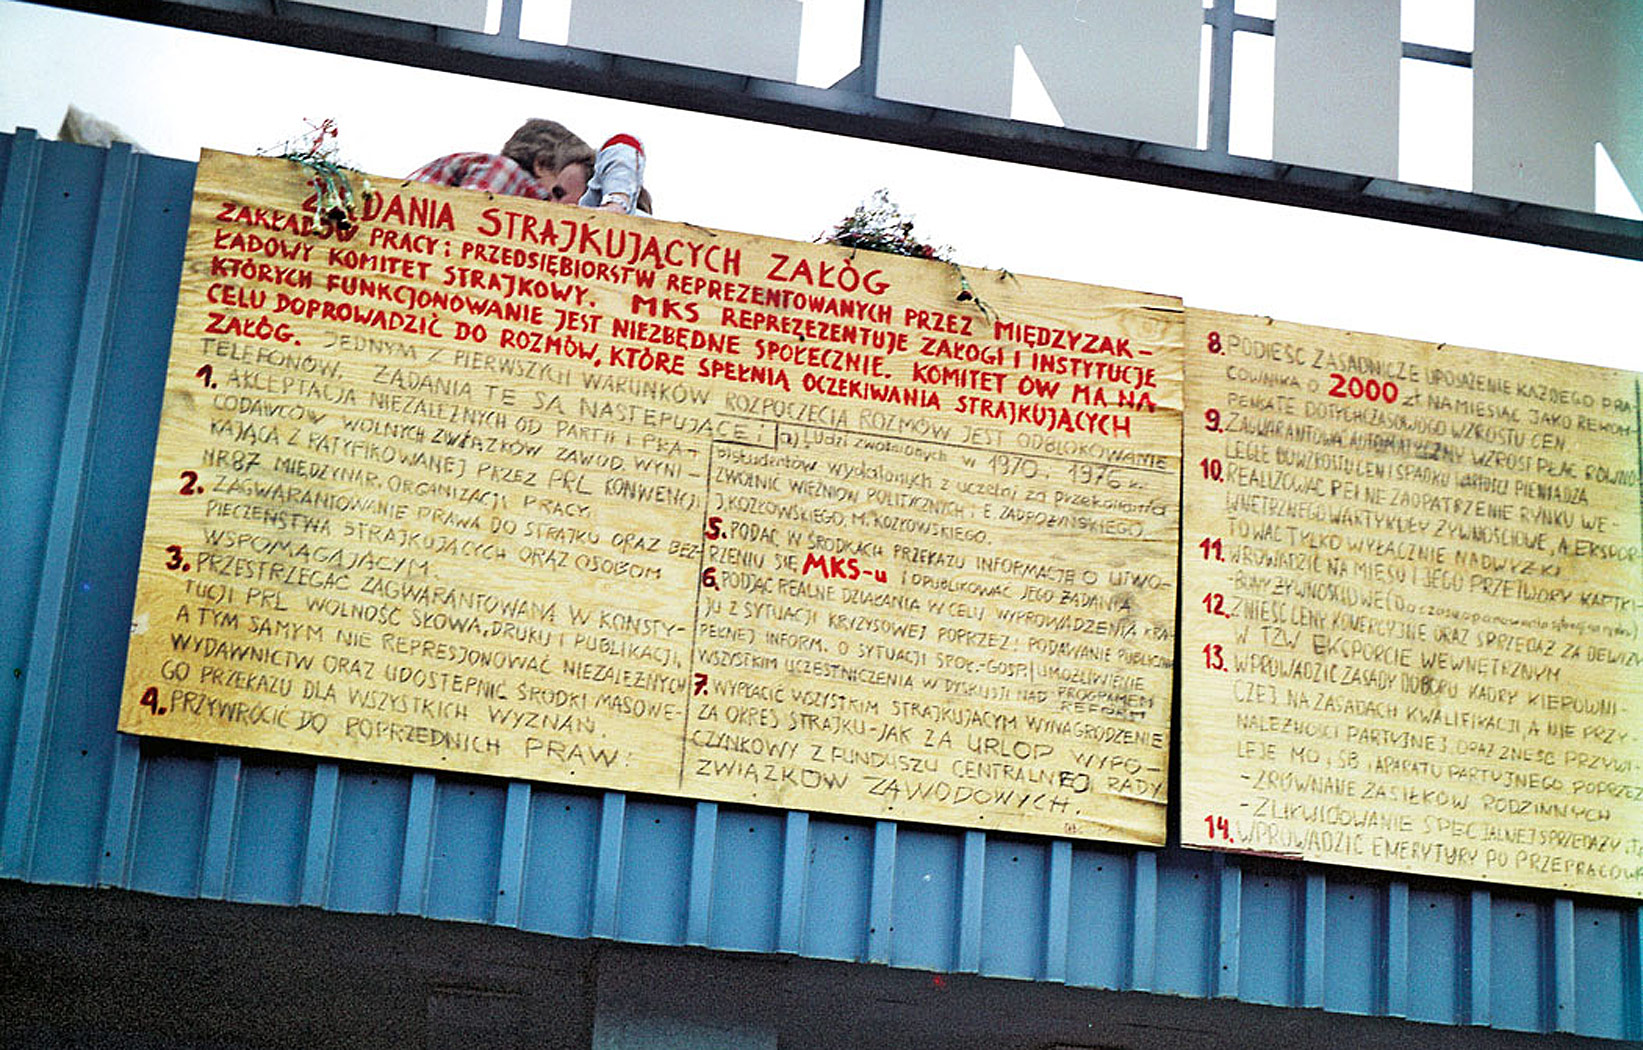 ŻĄDANIA STRAJKUJĄCYCH ZAŁÓG
ZAKŁADÓW PRACY i PRZEDSIĘBIORSTW REPREZENTOWANYCH PRZEZ MIĘDZYZAK-
ŁADOWY KOMITET STRAJKOWY. MKS REPREZEZENTUJE ZAŁOGI I INSTYTUCJE
KTÓRYCH FUNKCJONOWANIE JEST NIEZBĘDNE SPOŁECZNIE. KOMITET ÓW MA NA
CELU DOPROWADZIĆ DO ROZMÓW, KTÓRE SPEŁNIĄ OCZEKIWANIA STRAJKUJĄCYCH
ZAŁÓG. JEDNYM Z PIERWSZYCH WARUNKÓW ROZPOCZĘCIA ROZMÓW JEST ODBLOKOWANIE
TELEFONÓW. ŻĄDANIA TE SĄ NASTĘPUJĄCE:
1. AKCEPTACJA NIEZALEŻNYCH OD PARTII I PRA-
CODAWCÓW WOLNYCH ZWIĄZKÓW ZAWOD. WYNI-
KAJĄCA Z RATYFIKOWANEJ PRZEZ PRL KONWENCJI
NR87 MIĘDZYNAR. ORGANIZACJI PRACY.
2. ZAGWARANTOWANIE PRAWA DO STRAJKU ORAZ BEZ-
PIECZEŃSTWA STRAJKUJĄCYCH ORAZ OSOBOM
WSPOMAGAJĄCYM.
3. PRZESTRZEGAĆ ZAGWARANTOWANĄ W KONSTY-
TUCJI PRL WOLNOŚĆ SŁOWA, DRUKU I PUBLIKACJI,
A TYM SAMYM NIE REPRESJONOWAĆ NIEZALEŻNYCH
WYDAWNICTW ORAZ UDOSTĘPNIĆ ŚRODKI MASOWE-
GO PRZEKAZU DLA WSZYSTKICH WYZNAŃ.
4. PRZYWRÓCIĆ DO POPRZEDNICH PRAW:
a) Ludzi zwolnionych w 1970 i 1976 r.
b) studentów wydalonych z uczelni za przekonania
ZWOLNIĆ WIĘŹNIÓW POLITYCZNYCH: E. ZADROŻYŃSKIEGO
J. KOZŁOWSKIEGO, M. KOZŁOWSKIEGO.
5. PODAĆ W ŚRODKACH PRZEKAZU INFORMACJĘ O UTWO-
RZENIU SIĘ MKS-u I OPUBLIKOWAĆ JEGO ŻĄDANIA
6. PODJĄĆ REALNE DZIAŁANIA W CELU WYPROWADZENIA KRA-
JU Z SYTUACJI KRYZYSOWEJ POPRZEZ: PODAWANIE PUBLICZN.
PEŁNEJ INFORM. O SYTUACJI SPOŁ.-GOSP. UMOŻLIWIENIE
WSZYSTKIM UCZESTNICZENIA W DYSKUSJI NAD PROGRAMEM
REFORM
7. WYPŁACIĆ WSZYSTKIM STRAJKUJĄCYM WYNAGRODZENIE
ZA OKRES STRAJKU-JAK ZA URLOP WYPO-
CZYNKOWY Z FUNDUSZU CENTRALNEJ RADY
ZWIĄZKÓW ZAWODOWYCH.
8. PODIEŚĆ ZASADNICZE UPOSAŻENIE KAŻDEGO PRA-
COWNIKA O 2000 zł NA MIESIĄC JAKO REKOM-
PENSATĘ DOTYCHCZASOWEGO WZROSTU CEN
9. ZAGWARANTOWAĆ AUTOMATYCZNY WZROST PŁAC RÓWNO-
LEGLE DO WZROSTU CEN I SPADKU WARTOŚCI PIENIĄDZA
10. REALIZOWAĆ PEŁNE ZAOPATRZENIE RYNKU WE-
WNĘTRZNEGO W ARTYKUŁY ŻYWNOŚCIOWE, A EKSPOR-
TOWAĆ TYLKO WYŁĄCZNIE NADWYŻKI
11. WROWADZIĆ NA MIĘSO I JEGO PRZETWORY KARTKI
-BONY ŻYWNOŚCIOWE
12. ZNIEŚĆ CENY KOMERCYJNE ORAZ SPRZEDAŻ ZA DEWIZY
W TZW EKSPORCIE WEWNĘTRZNYM
13. WPROWADZIĆ ZASADY DOBORU KADRY KIEROWNI-
CZEJ NA ZASADACH KWALIFIKACJI, A NIE PRZY-
NALEŻNOŚCI PARTYJNEJ ORAZ ZNIEŚĆ PRZYWI-
LEJE MO, SB I APARATU PARTYJNEGO POPRZEZ
-ZRÓWNANIE ZASIŁKÓW RODZINNYCH
-ZLIKWIDOWANIE SPECJALNEJ SPRZEDAŻY
14. WPROWADZIĆ EMERYTURY PO PRZEPRACOWA